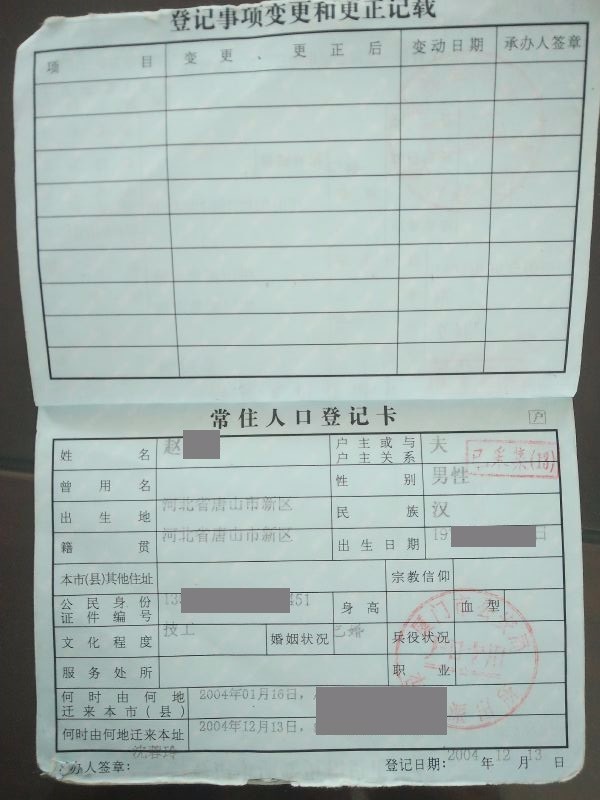 登记事项变更和更正记载
项 目 变更、更正后 变动日期 承办人签章
常住人口登记卡
户
姓 名 赵 户主或与户主关系 夫
已采集(13)
曾用名 性别 男性
出生地 河北省唐山市新区 民族 汉
籍贯 河北省唐山市新区 出生日期 19 日
本市(县)其他住址 宗教信仰
公民身份证件编号 13 451 身高 血型
文化程度 技工 婚姻状况 已婚 兵役状况
服务处所 职业
何时由何地迁来本市(县) 2004年01月16日,
何时由何地迁来本址 2004年12月13日,
沈蓉玲
承办人签章: 登记日期: 2004 年 12 月 13 日